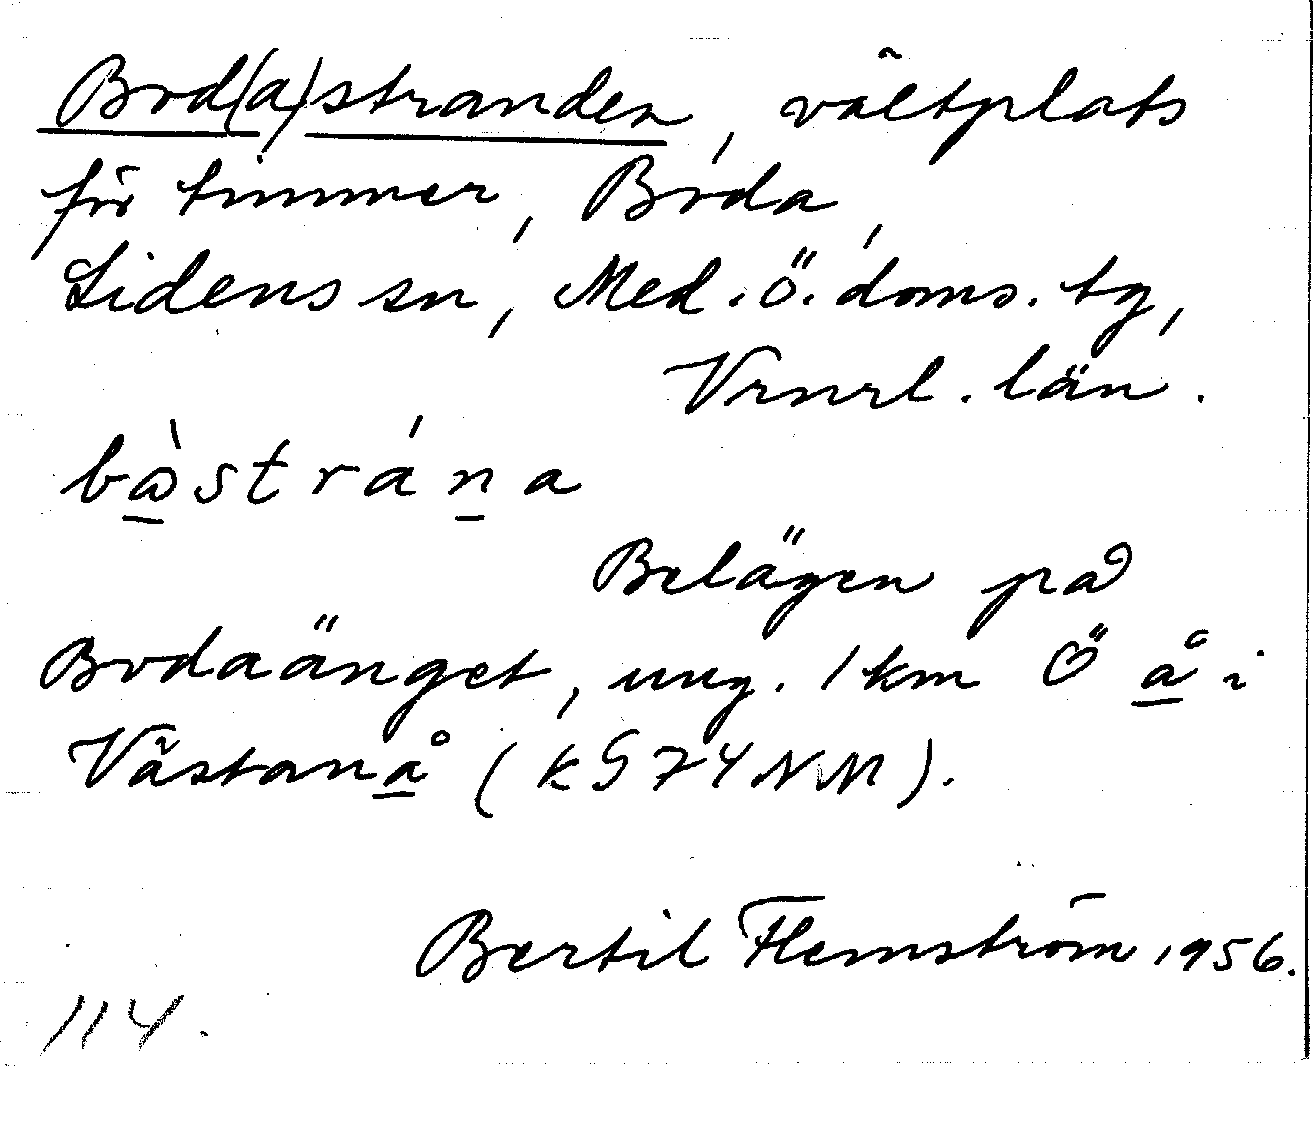 Bod(a)stranden, vältplats
för timmer, Boda,
Lidens sn, Med. Ö. doms. tg,
Vrnrl. län.
Belägen på
Bodaänget, ung. 1 km Ö å i
Västanå (kG74NM).
Bertil Flemström 1956.
114.